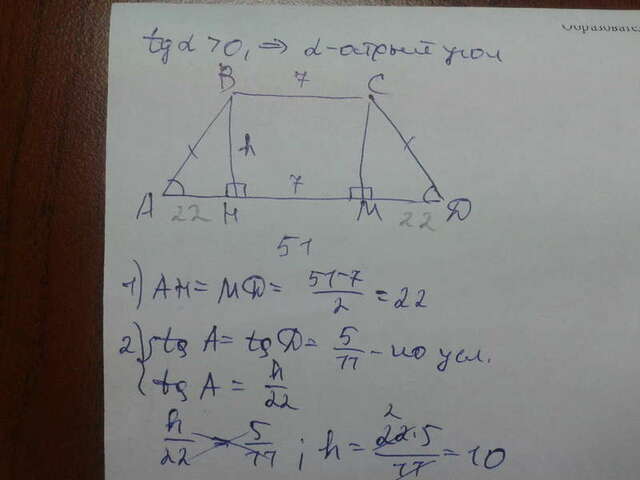 Образовате
tg α > 0, ⇒ α - острый угол
B 7 C
h
A 22 H 7 M 22 D
51
1) AH = MD = \frac{51-7}{2} = 22
2) { tg A = tg D = \frac{5}{11} - по усл.
tg A = \frac{h}{22}
\frac{h}{22} = \frac{5}{11} ; h = \frac{22·5}{11} = 10
2